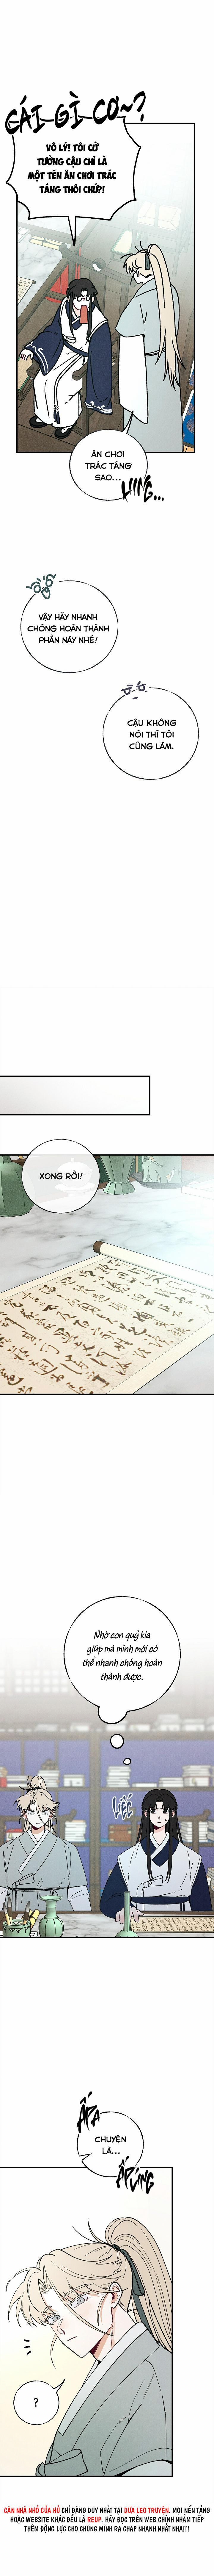 CÁI GÌ CƠ~?
VÔ LÝ! TÔI CỨ
TƯỞNG CẬU CHỈ LÀ
MỘT TÊN ĂN CHƠI TRÁC
TÁNG THÔI CHỨ?!
ĂN CHƠI
TRÁC TÁNG
SAO...
VẬY HÃY NHANH
CHÓNG HOÀN THÀNH
PHẦN NÀY NHÉ!
CẬU KHÔNG
NÓI THÌ TÔI
CŨNG LÀM.
XONG RỒI!
Nhờ con quỷ kia
giúp mà mình mới có
thể nhanh chóng hoàn
thành được.
LIẾC
ẤP A
CHUYỆN
LÀ...
ẤP ÚNG
?
CĂN NHÀ NHỎ CỦA HỦ CHỈ ĐĂNG DUY NHẤT TẠI DƯA LEO TRUYỆN. MỌI NỀN TẢNG
HOẶC WEBSITE KHÁC ĐỀU LÀ REUP. HÃY ĐỌC TRÊN WEB CHÍNH NHẰM TIẾP
THÊM ĐỘNG LỰC CHO CHÚNG MÌNH RA CHAP NHANH NHẤT NHA!!!